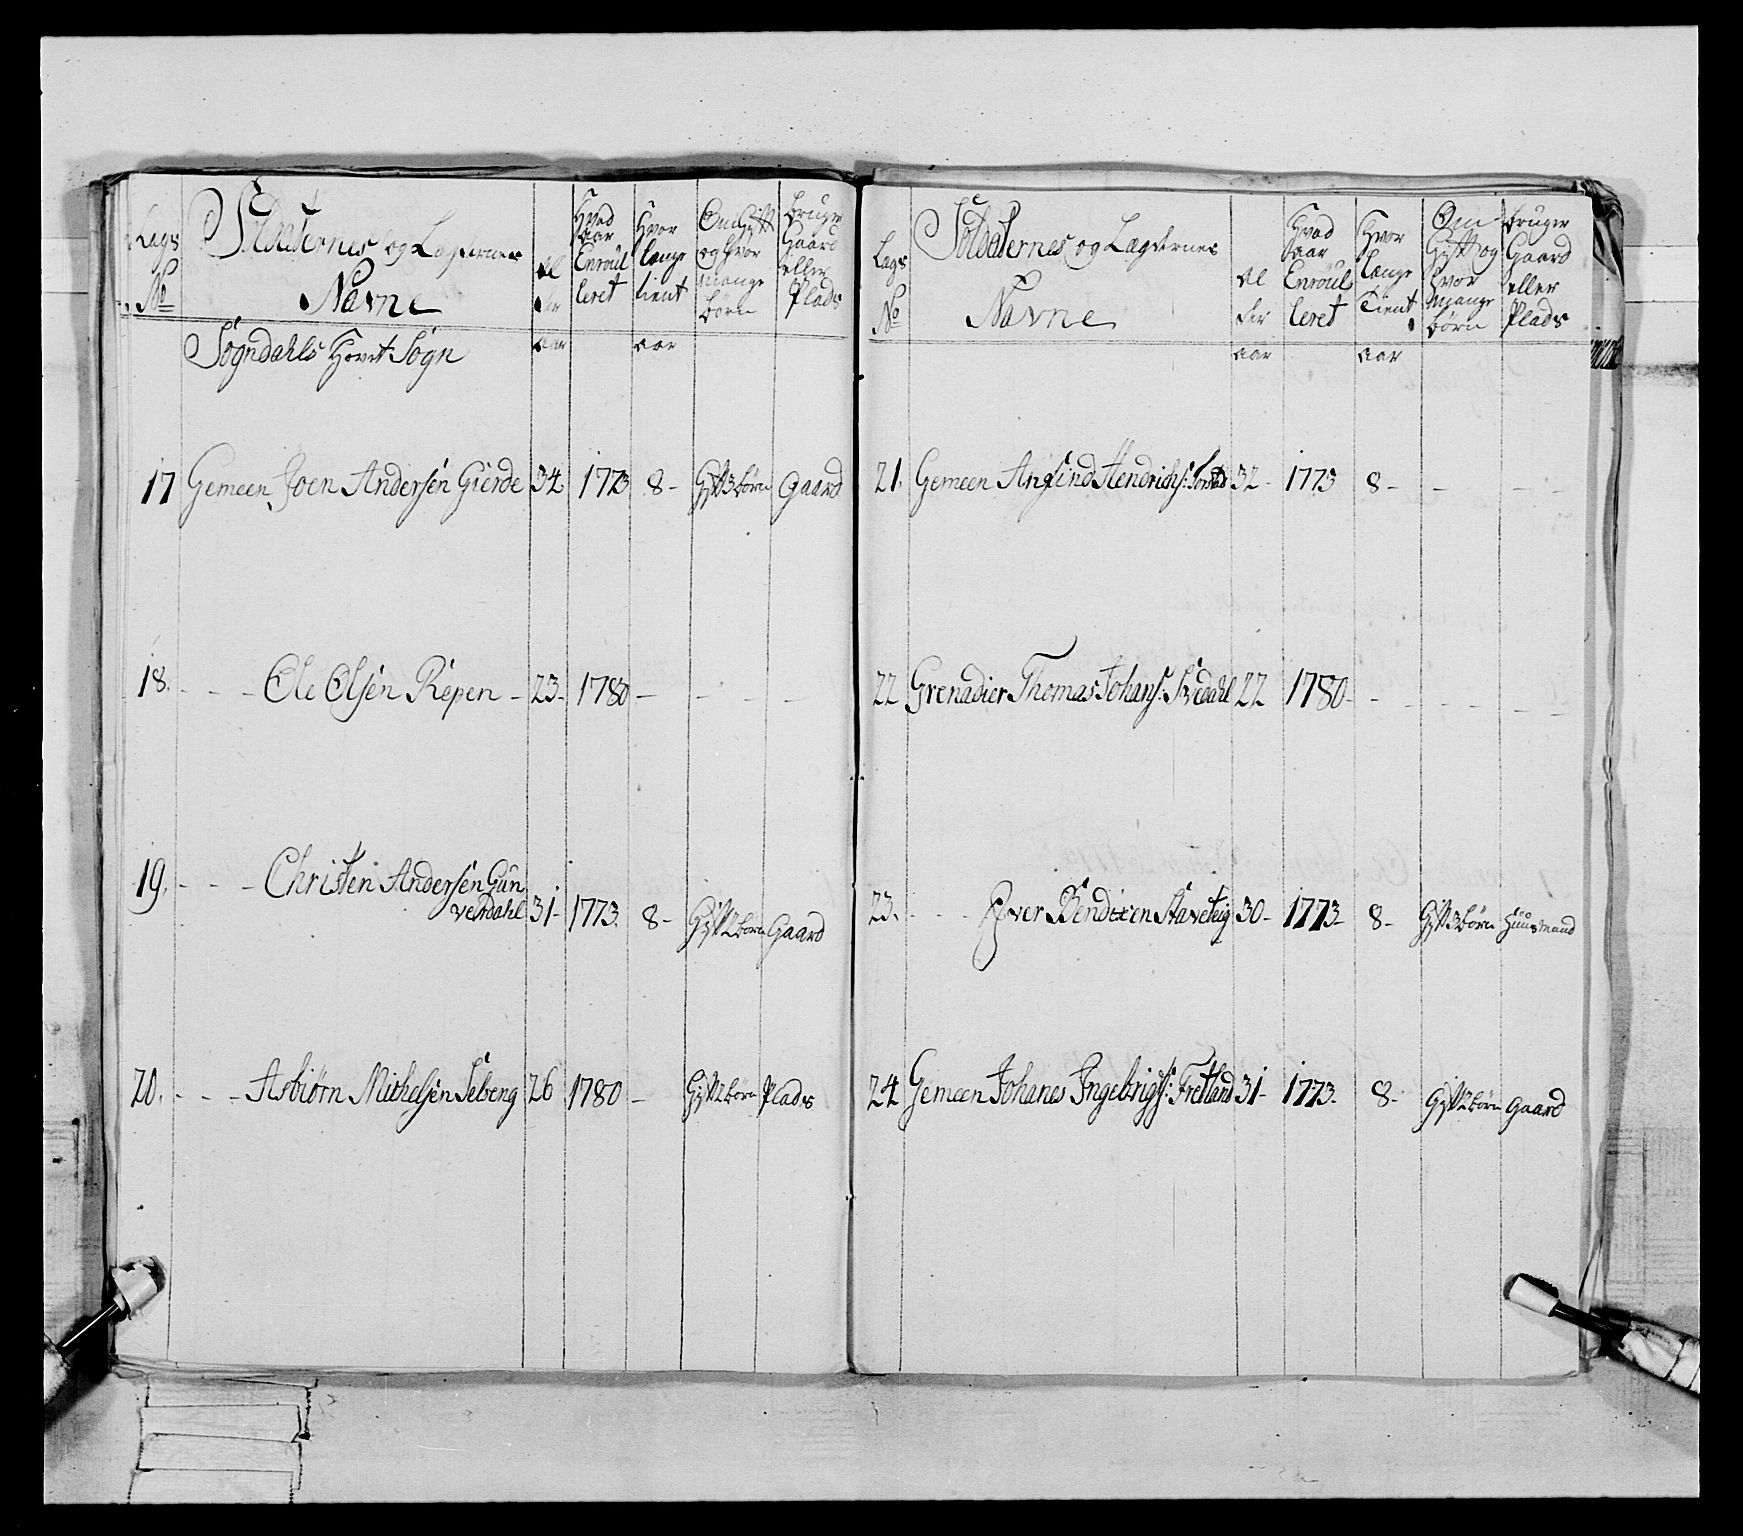 Lags No | Soldaternes og Lægdernes Navne | Al der | Hvad Aar Enroul leret | Hvor længe tient | Om Gift og hvor mange børn | bruger Gaard eller Plads
Sogndahls Hovet Sogn | aar | aar
17 Gemeen Joen Andersen Gierde 34 1773 8- Gift 3 børn Gaard
18. - - - Ole Olsen Repen - 23- 1780 - - - -
19. - - - Christen Andersen Gun
verdahl 31- 1773 8- Gift 2 børn Gaard
20. - - - Asbiørn Michelsen Seberg 26 1780 - Gift 2 børn Plads
Lags No | Soldaternes og Lægdernes Navne | Al der | Hvad Aar Enroul leret | Hvor længe Tient | Om Gift og hvor mange børn | bruger Gaard eller Plads
aar | aar
21. Gemeen Hendrichs: 32- 1773 8- - - -
22 Grenadier Thomas Johans: 22 1780 - - - - -
23. - - - Iver Staveteig 30- 1773- 8- Gift 3 børn Huusmand
24 Gemeen Johanes Ingebrigts: Fretland 31- 1773- 8- Gift 2 børn Gaard